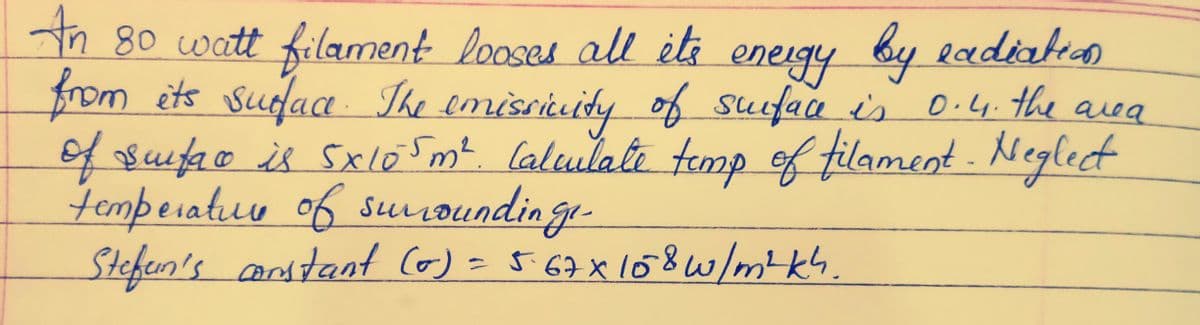 An 80 watt filament looses all its energy by radiation
from its surface. The emissivity of surface is 0.4. the area
of surface is 5x10⁻⁵m². Calculate temp of filament. Neglect
temperature of surroundings.
Stefan's constant (σ) = 5.67x10⁻⁸w/m²k⁴.